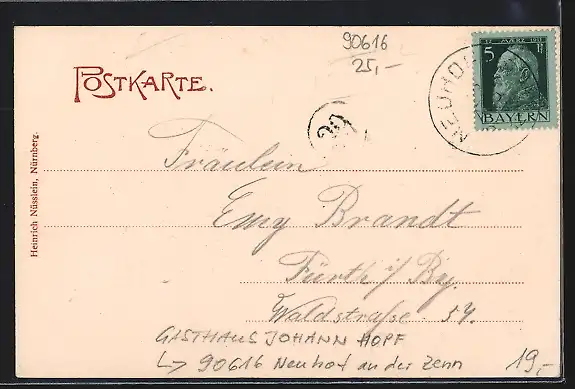 90616
25,-
POSTKARTE.
12. MÄRZ 1911
5 Pf
BAYERN
NEUHO
20
Heinrich Nüsslein, Nürnberg.
Fräulein
Emy Brandt
Fürth i/ By.
Waldstraße 54.
GASTHAUS JOHANN HOPF
↳ 90616 Neuhof an der Zenn
19,-